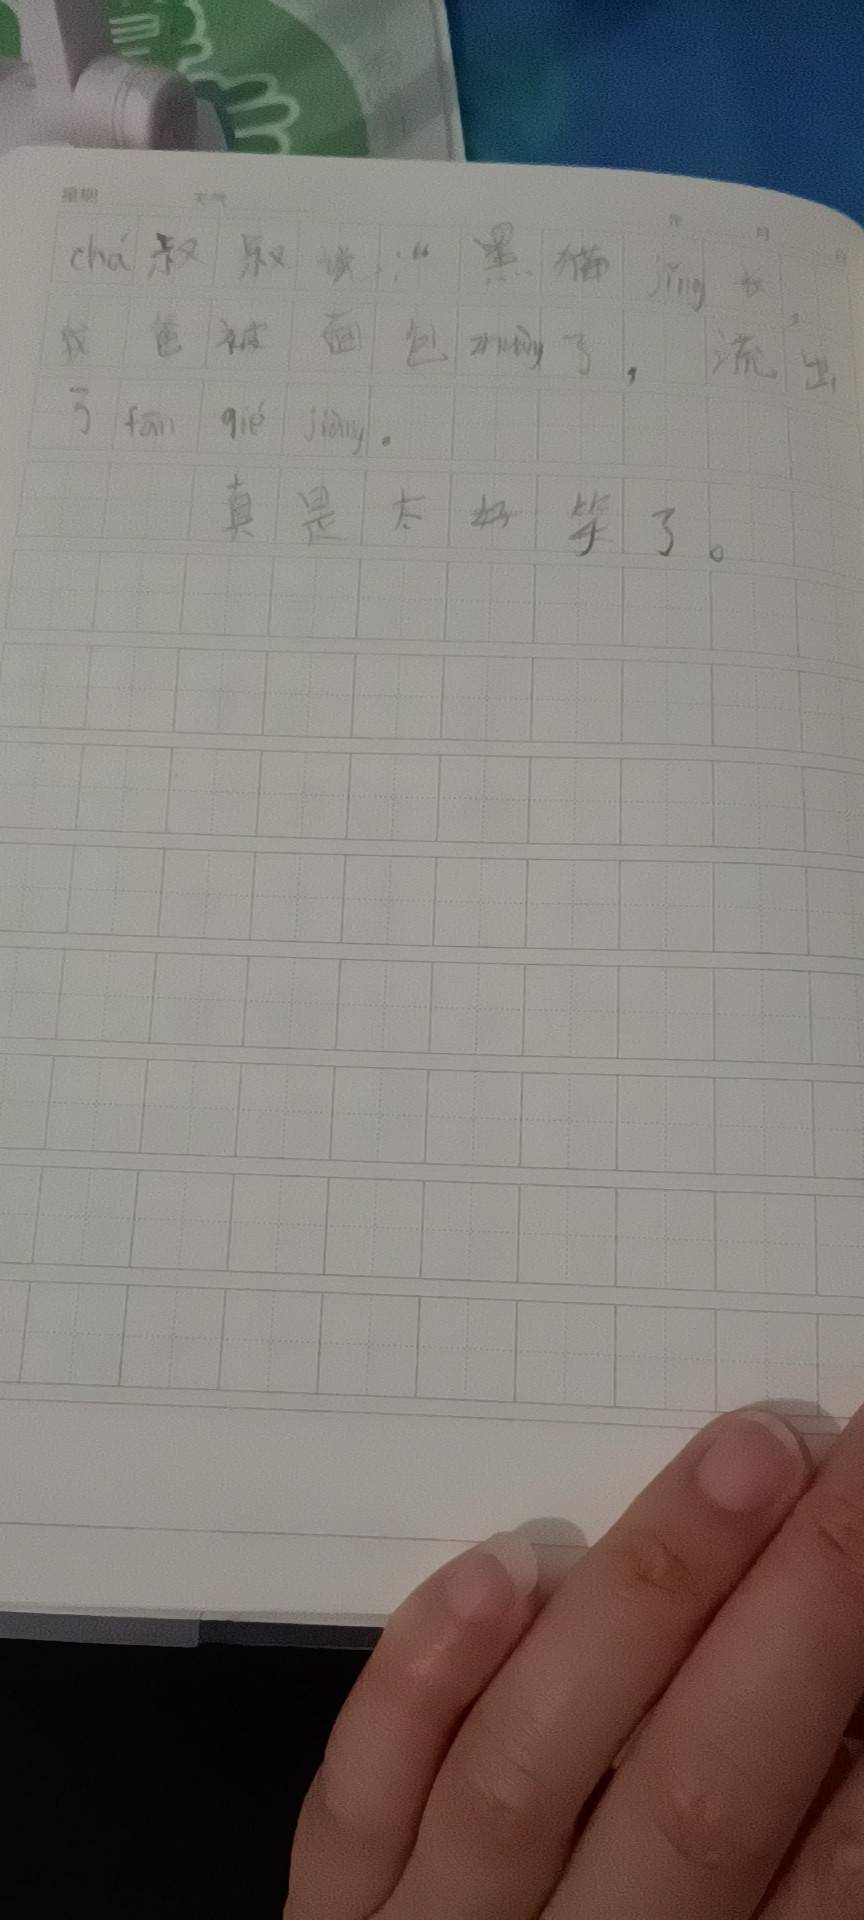 星期 天气
年 月 日
chá叔叔说:“黑猫jǐng长,
我爸被面包zhuàng了,流出
了fān qié jiàng。
真是太好笑了。